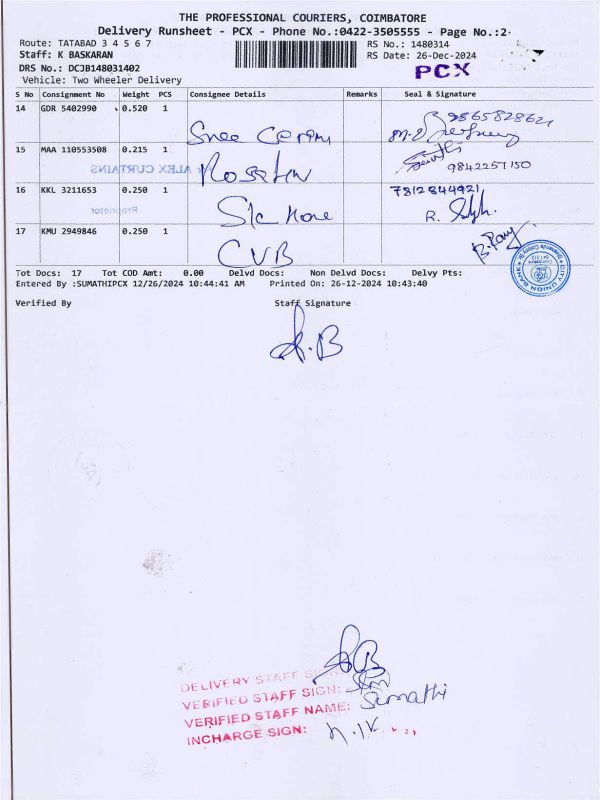 THE PROFESSIONAL COURIERS, COIMBATORE
Delivery Runsheet - PCX - Phone No.:0422-3505555 - Page No.:2
Route: TATABAD 3 4 5 6 7
RS No.: 1480314
Staff: K BASKARAN
RS Date: 26-Dec-2024
DRS No.: DCJB148031402
PCX
Vehicle: Two Wheeler Delivery
S No Consignment No Weight PCS Consignee Details Remarks Seal & Signature
14 GDR 5402990 0.520 1
Sree
15 MAA 110553508 0.215 1
9842257150
ALEX CURTAINS
16 KKL 3211653 0.250 1
7812844921
Proprietor
17 KMU 2949846 0.250 1
CVB
CITY UNION BANK
Tot Docs: 17 Tot COD Amt: 0.00 Delvd Docs: Non Delvd Docs: Delvy Pts:
Entered By :SUMATHIPCX 12/26/2024 10:44:41 AM Printed On: 26-12-2024 10:43:40
Verified By Staff Signature
DELIVERY STAFF
VERIFIED STAFF SIGN:
VERIFIED STAFF NAME: Sumathi
INCHARGE SIGN: